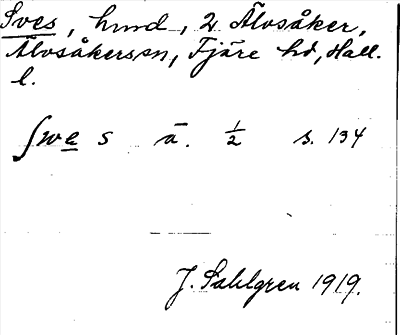 Sves, hund, 2 Älvsåker,
Älvsåkers sn, Fjäre hd, Hall.
l.
ʃwe s ā. 1/2 s. 134
J. Sahlgren 1919.